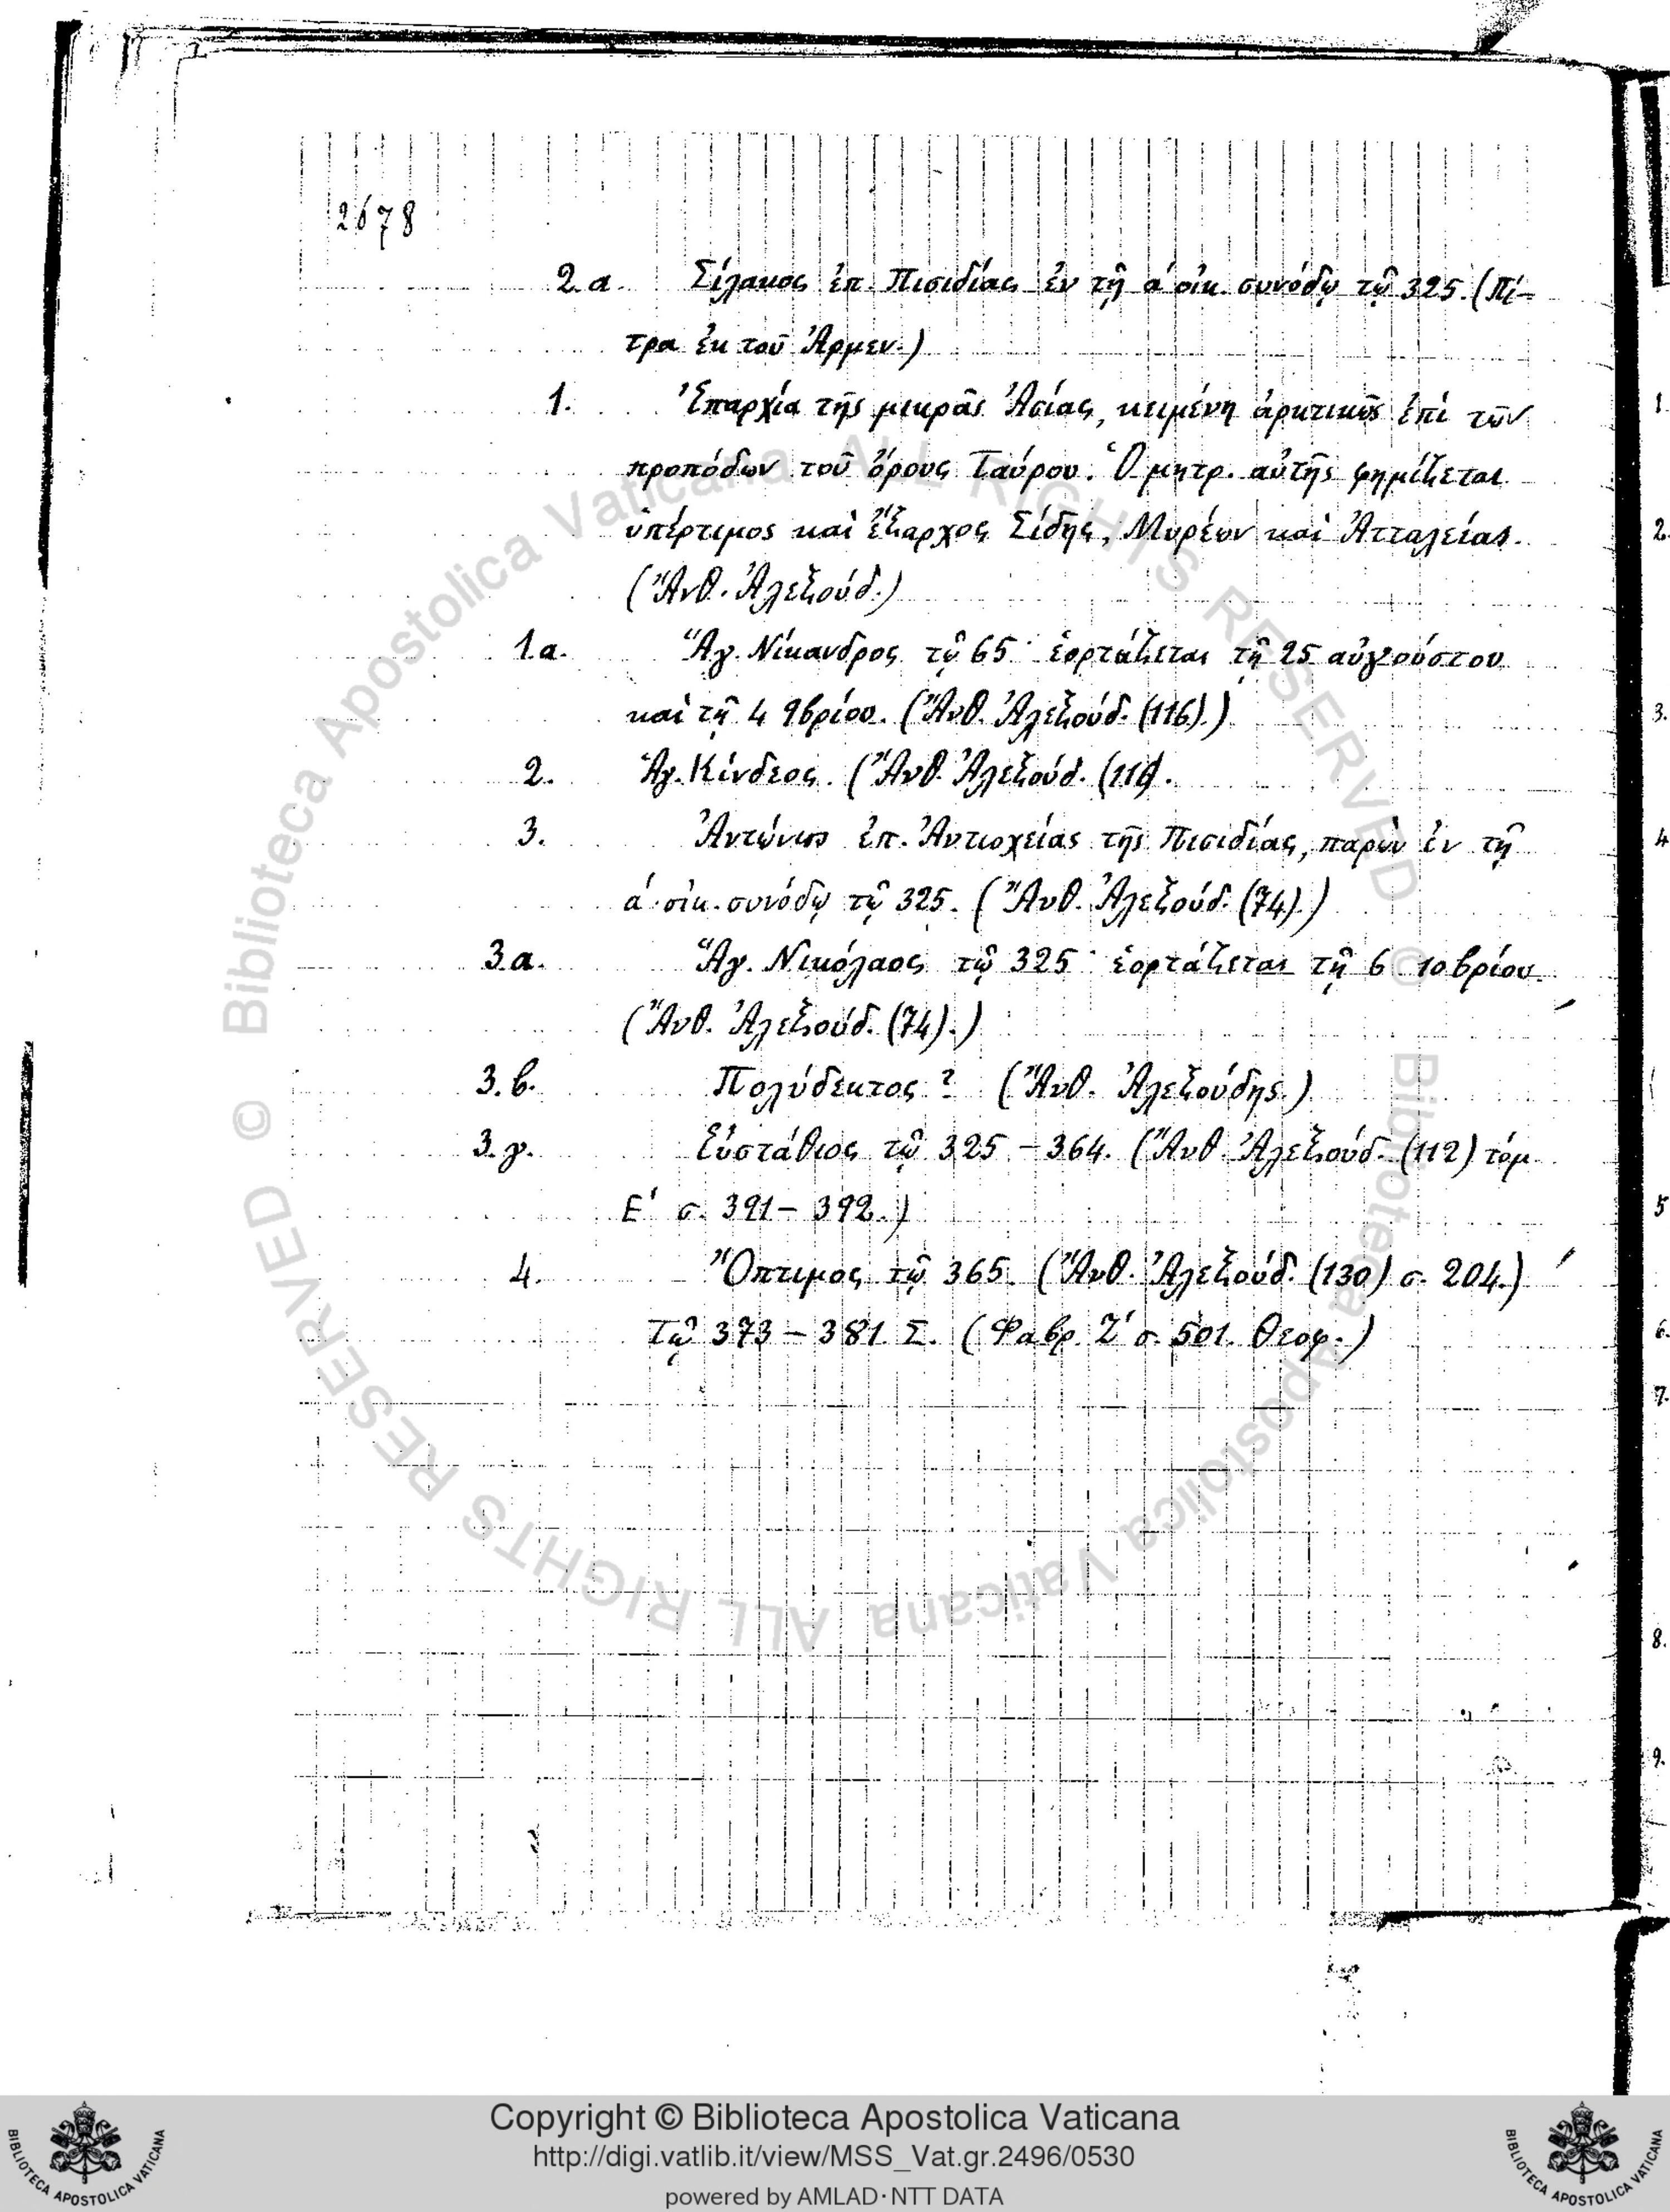 2678
2.α. Σίλακος ἐπ. Πισιδίας ἐν τῇ α΄ οἰκ. συνόδῳ τῷ 325. (Πί-
τρα ἐκ τοῦ Ἀρμεν.)
1. Ἐπαρχία τῆς μικρᾶς Ἀσίας, κειμένη ἀρκτικῶς ἐπὶ τῶν
προπόδων τοῦ ὄρους Ταύρου. Ὁ μητρ. αὐτῆς φημίζεται
ὑπέρτιμος καὶ ἔξαρχος Σίδης, Μυρέων καὶ Ἀτταλείας.
(Ἄνθ. Ἀλεξούδ.)
1.α. Ἅγ. Νίκανδρος τῷ 65· ἑορτάζεται τῇ 25 αὐγούστου
καὶ τῇ 4 9βρίου. (Ἄνθ. Ἀλεξούδ. (116).)
2. Ἅγ. Κίνδεος. (Ἄνθ. Ἀλεξούδ. (116).
3. Ἀντώνιος ἐπ. Ἀντιοχείας τῆς Πισιδίας, παρὼν ἐν τῇ
α΄ οἰκ. συνόδῳ τῷ 325. (Ἄνθ. Ἀλεξούδ. (74).)
3.α. Ἅγ. Νικόλαος τῷ 325· ἑορτάζεται τῇ 6 10βρίου.
(Ἄνθ. Ἀλεξούδ. (74).)
3.β. Πολύδεκτος? (Ἄνθ. Ἀλεξούδης.)
3.γ. Εὐστάθιος τῷ 325 – 364. (Ἄνθ. Ἀλεξούδ. (112) τόμ.
Ε΄ σ. 391 – 392.)
4. Ὄπτιμος τῷ 365. (Ἄνθ. Ἀλεξούδ. (130) σ. 204.)
Τῷ 373 – 381 Σ. (Φαβρ. Ζ΄ σ. 501. Θεοφ.)
1
2.
3.
4
5
6.
7.
8.
9.
© Biblioteca Apostolica Vaticana ALL RIGHTS RESERVED
© Biblioteca Apostolica Vaticana ALL RIGHTS RESERVED
Copyright © Biblioteca Apostolica Vaticana
http://digi.vatlib.it/view/MSS_Vat.gr.2496/0530
powered by AMLAD·NTT DATA
BIBLIOTECA APOSTOLICA VATICANA
BIBLIOTECA APOSTOLICA VATICANA